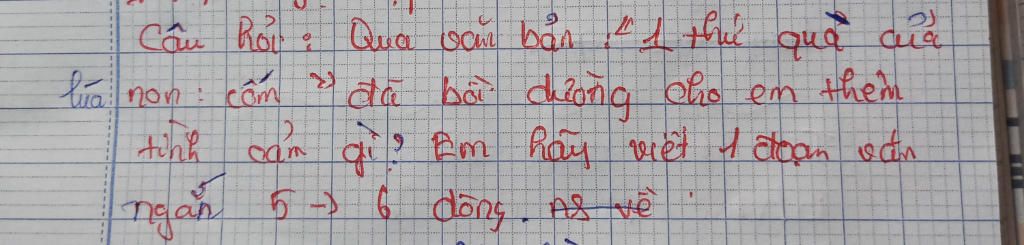 Câu hỏi: Qua văn bản "1 thứ quà của
lúa non: cốm" đã bồi dưỡng cho em thêm
tình cảm gì? Em hãy viết 1 đoạn văn
ngắn 5 → 6 dòng. về